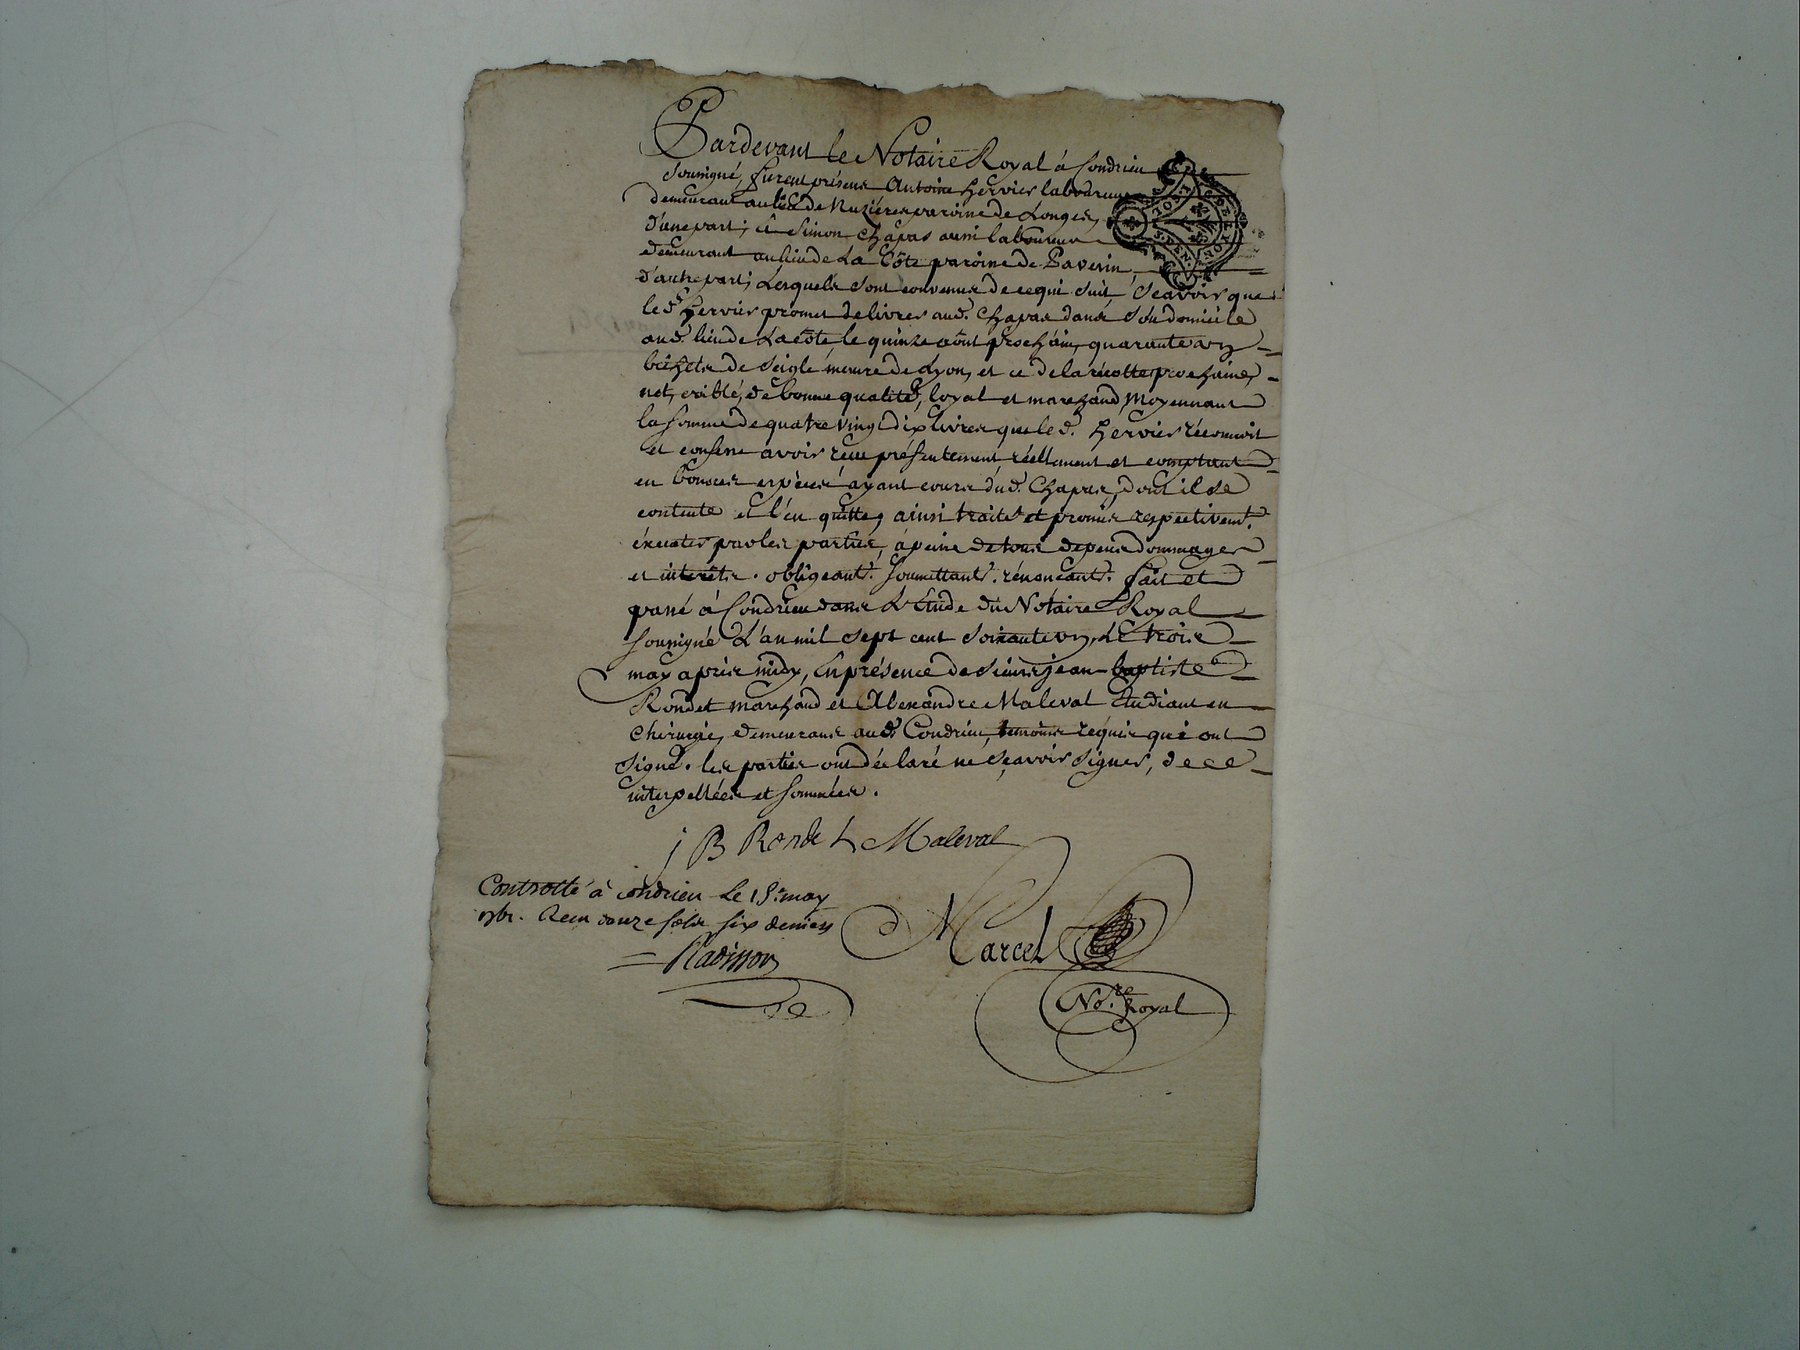 Pardevant le Notaire Royal à Condrieu
soussigné, furent présens Antoine Hervier laboureur
demeurant au lieu de Nuzieres paroisse de Longes,
d'une part; et Simon Chapas aussi laboureur
demeurant au lieu de La Côte paroisse de Pavesin
d'autre part; Lesquels sont convenus de ce qui suit Sçavoir que
le d. Hervier promet delivrer aud. Chapas dans son domicile
aud. lieu de La Côte le quinze aout prochain, quarante un
bichets de seigle mesure de Lyon, et ce de la récolte prochaine,
net, criblé, de bonne qualité, loyal et marchand, Moyennant
la somme de quatre vingt dix livres que le d. Hervier réconnoit
et confesse avoir reçue présentement réellement et comptant
en bonnes espèces ayant cours du d. Chapas, dont il se
contente et l'en quitte, ainsi traité et promis respectivemt.
éxécuter par les parties, à peine de tous depens dommages
et interêts. obligeant. soumettant. rénonceant. fait et
passé à Condrieu dans L'Etude du Notaire Royal
soussigné L'an mil sept cent soixante un, Le trois
may après midy, En présence de Sieurs jean baptiste
Rondet marchand et Alexandre Maleval Etudiant en
Chirurgie, demeurans aud. Condrieu, temoins réquis qui ont
signé. les parties ont déclaré ne sçavoir signer, de ce
interpellées et sommées.
j B Rondet Maleval
Controllé à Condrieu Le 15. may
1761. Reçu douze sols six deniers
Marcel
Radisson
No.re Royal